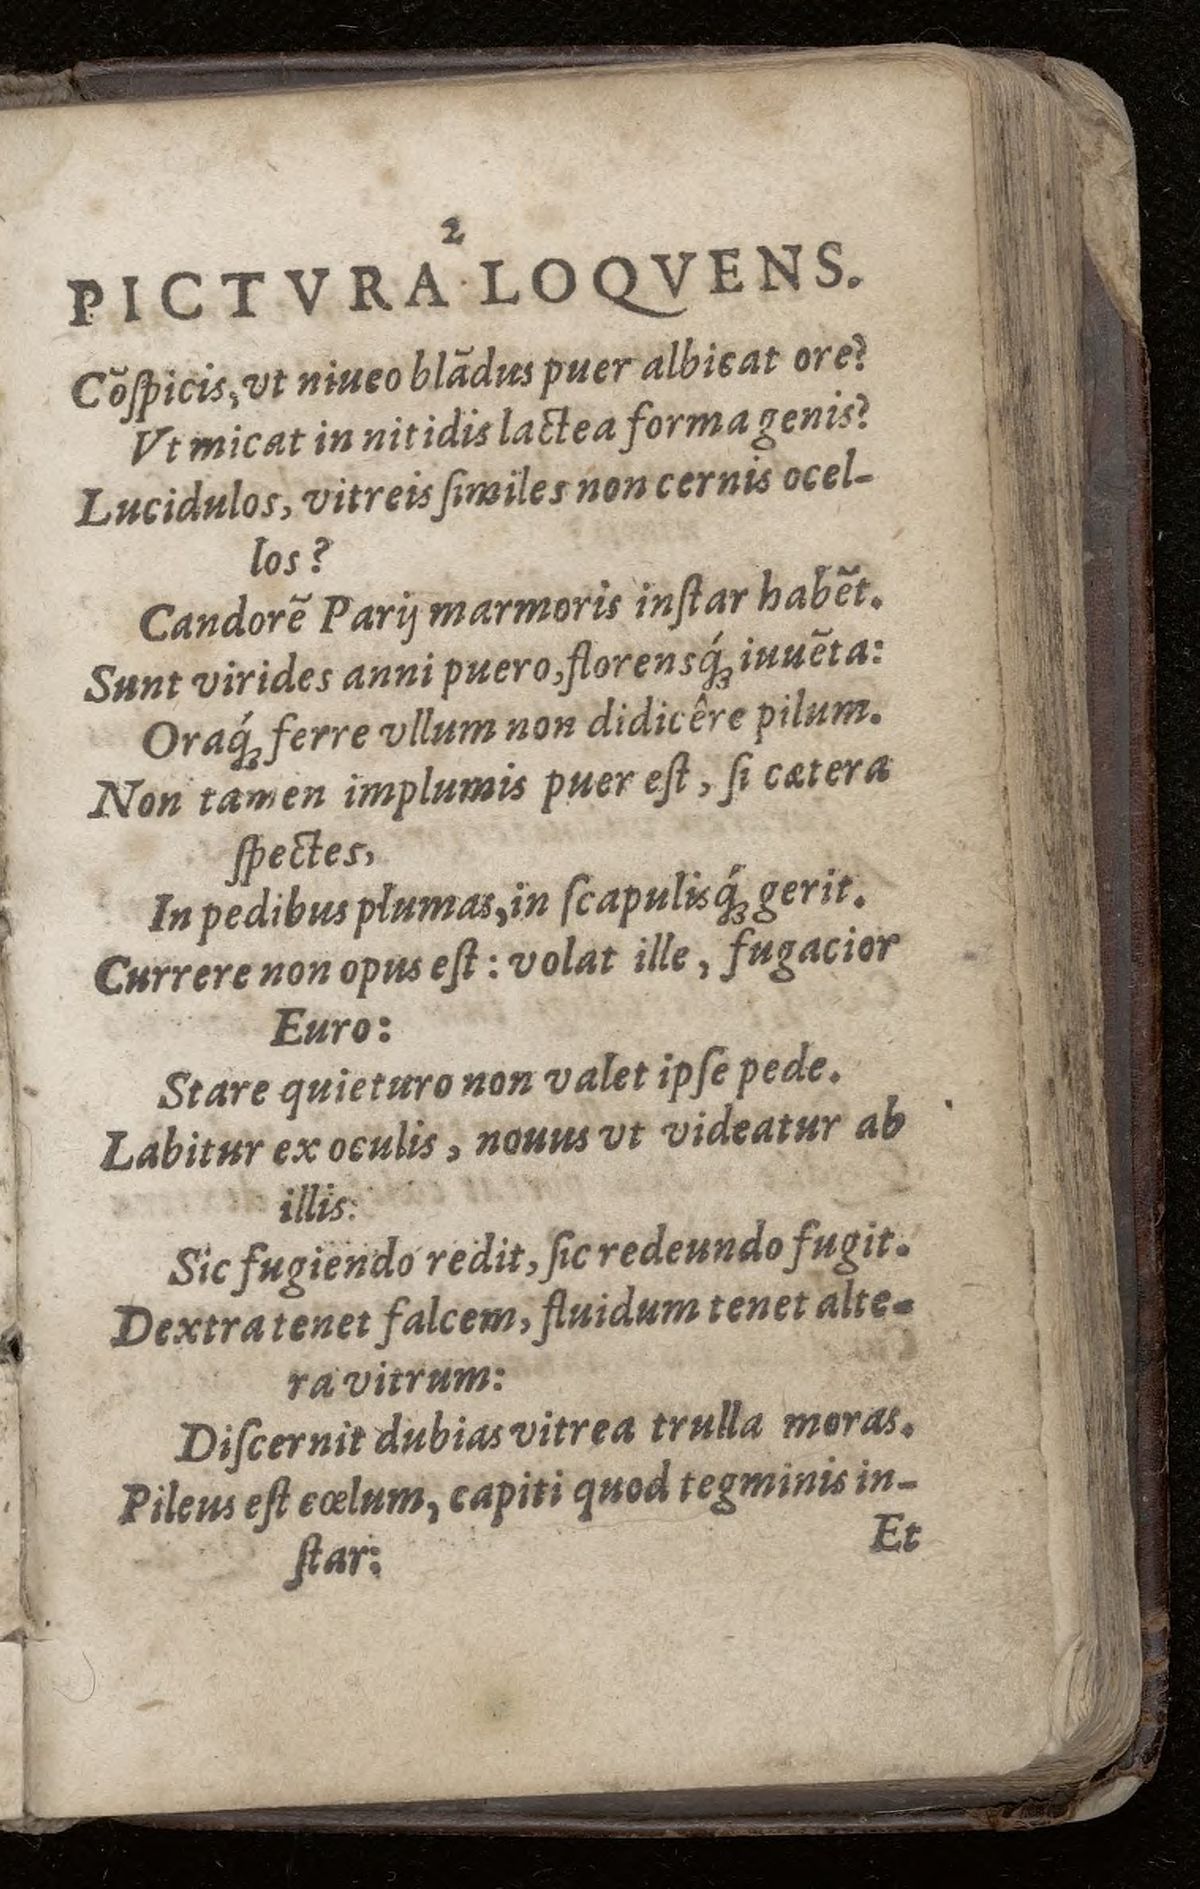 2
PICTVRA LOQVENS.
Cõſpicis, vt niueo blãdus puer albicat ore?
Vt micat in nitidis lactea forma genis?
Lucidulos, vitreis ſimiles non cernis ocel-
los?
Candorẽ Parij marmoris inſtar habẽt.
Sunt virides anni puero, florensq́ꝫ iuuẽta:
Oraq́ꝫ ferre vllum non didicêre pilum.
Non tamen implumis puer eſt, ſi cætera
ſpectes,
In pedibus plumas, in ſcapulisq́ꝫ gerit.
Currere non opus eſt: volat ille, fugacior
Euro:
Stare quieturo non valet ipſe pede.
Labitur ex oculis, nouus vt videatur ab
illis:
Sic fugiendo redit, ſic redeundo fugit.
Dextra tenet falcem, fluidum tenet alte-
ra vitrum:
Diſcernit dubias vitrea trulla moras.
Pileus eſt cœlum, capiti quod tegminis in-
ſtar:
Et